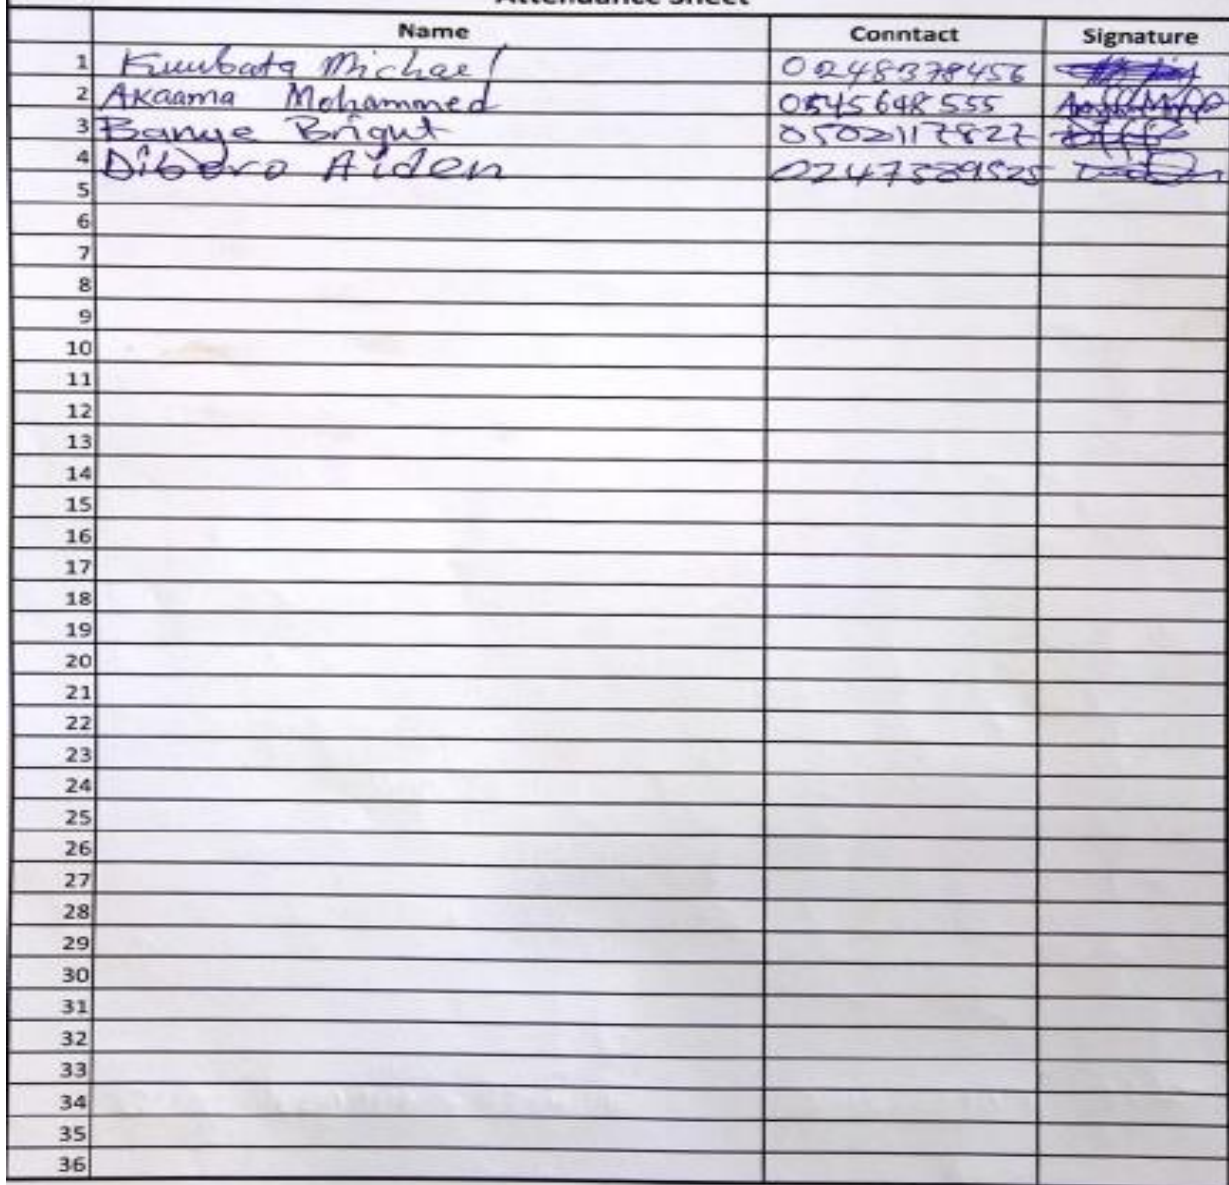 Attendance Sheet
Name Conntact Signature
1 Kuubata Michael 0248378456
2 Akaama Mohammed 0545648555
3 Banye Bright 0502117827
4 Dibero Aiden
5
6
7
8
9
10
11
12
13
14
15
16
17
18
19
20
21
22
23
24
25
26
27
28
29
30
31
32
33
34
35
36